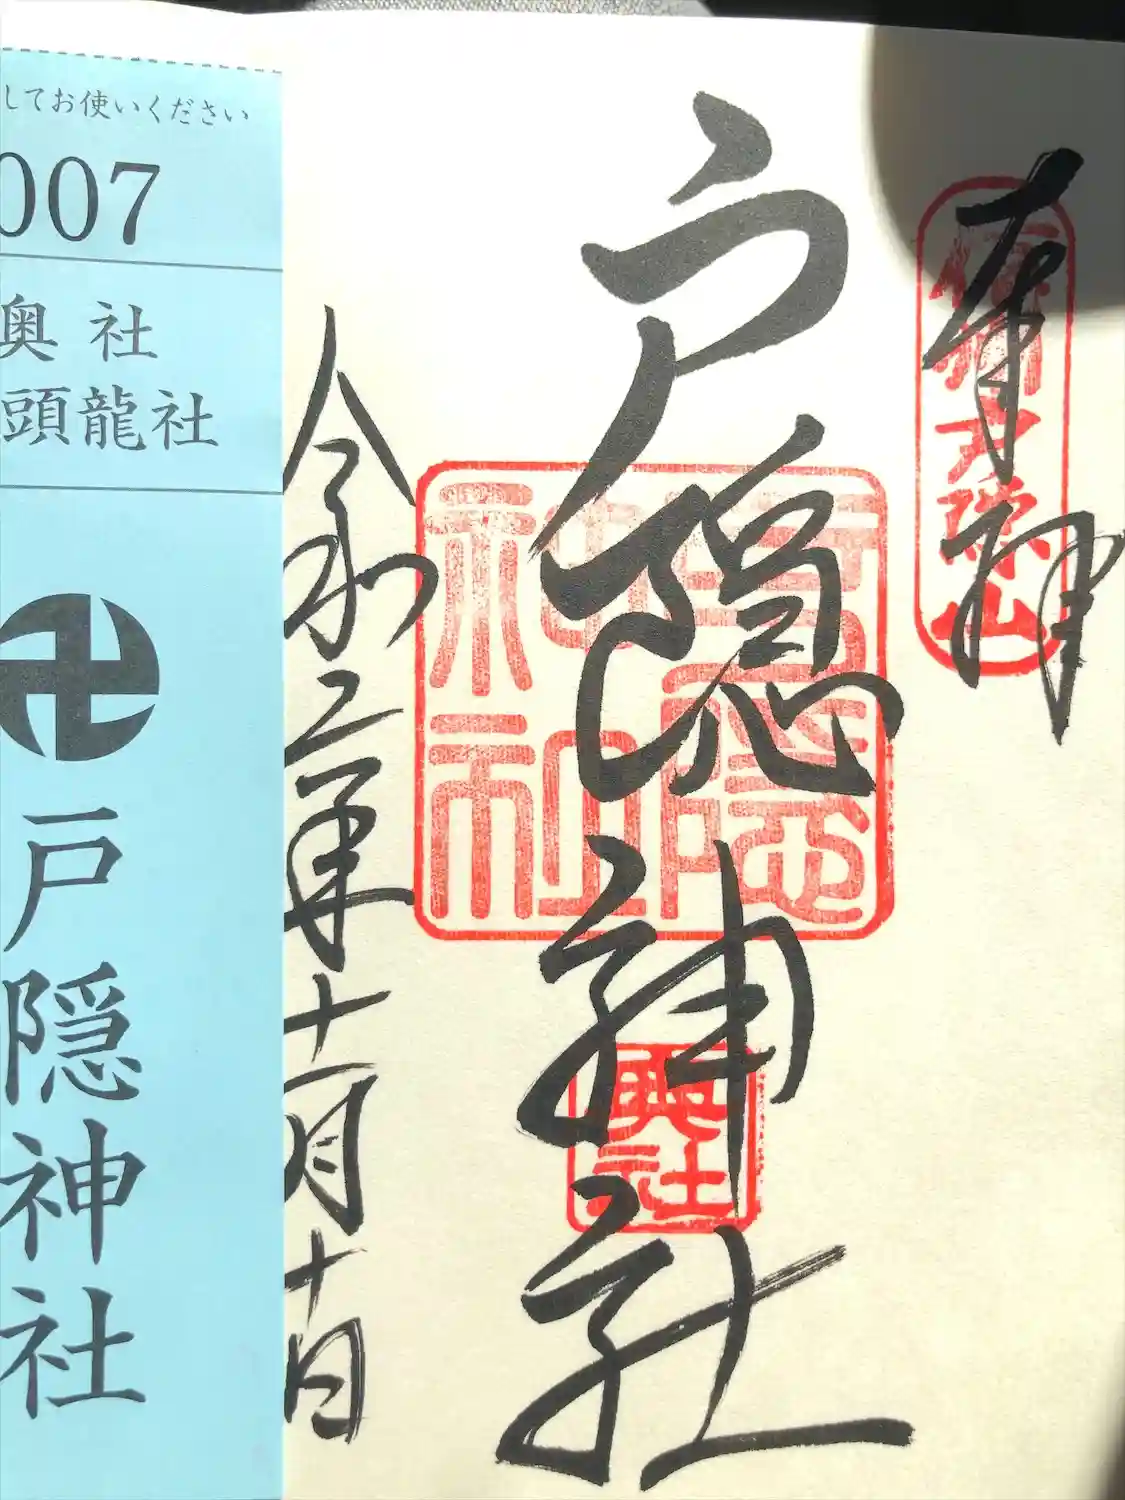 奉拝
信州戸隠山
戸隠神社
奥社
令和二年十一月十一日
してお使いください
007
奥社
頭龍社
戸隠神社